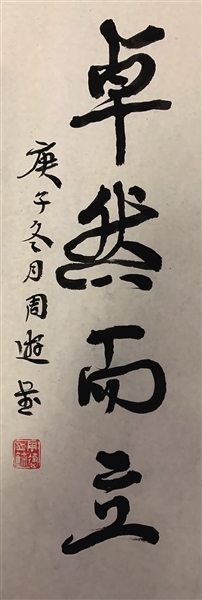 卓然而立
庚子冬月周游